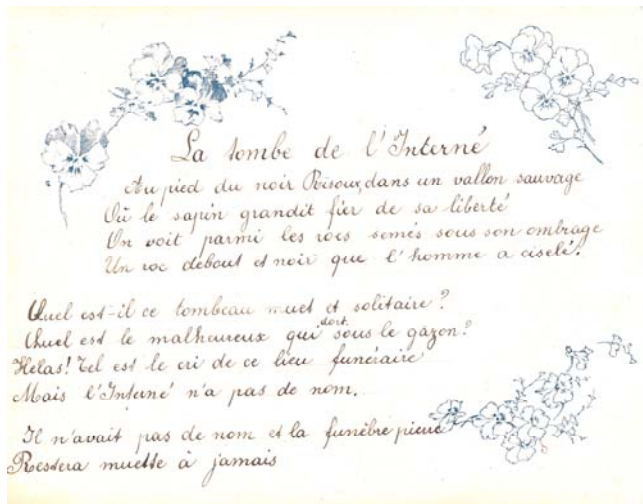 La tombe de l'Interné
Au pied du noir Risoux, dans un vallon sauvage
Où le sapin grandit fier de sa liberté
On voit parmi les rocs semés sous son ombrage
Un roc debout et noir que l'homme a ciselé.
Quel est-il ce tombeau muet et solitaire?
Quel est le malheureux qui dort sous le gazon?
Hélas! Tel est le cri de ce lieu funéraire
Mais l'Interné n'a pas de nom.
Il n'avait pas de nom et la funèbre pierre
Restera muette à jamais